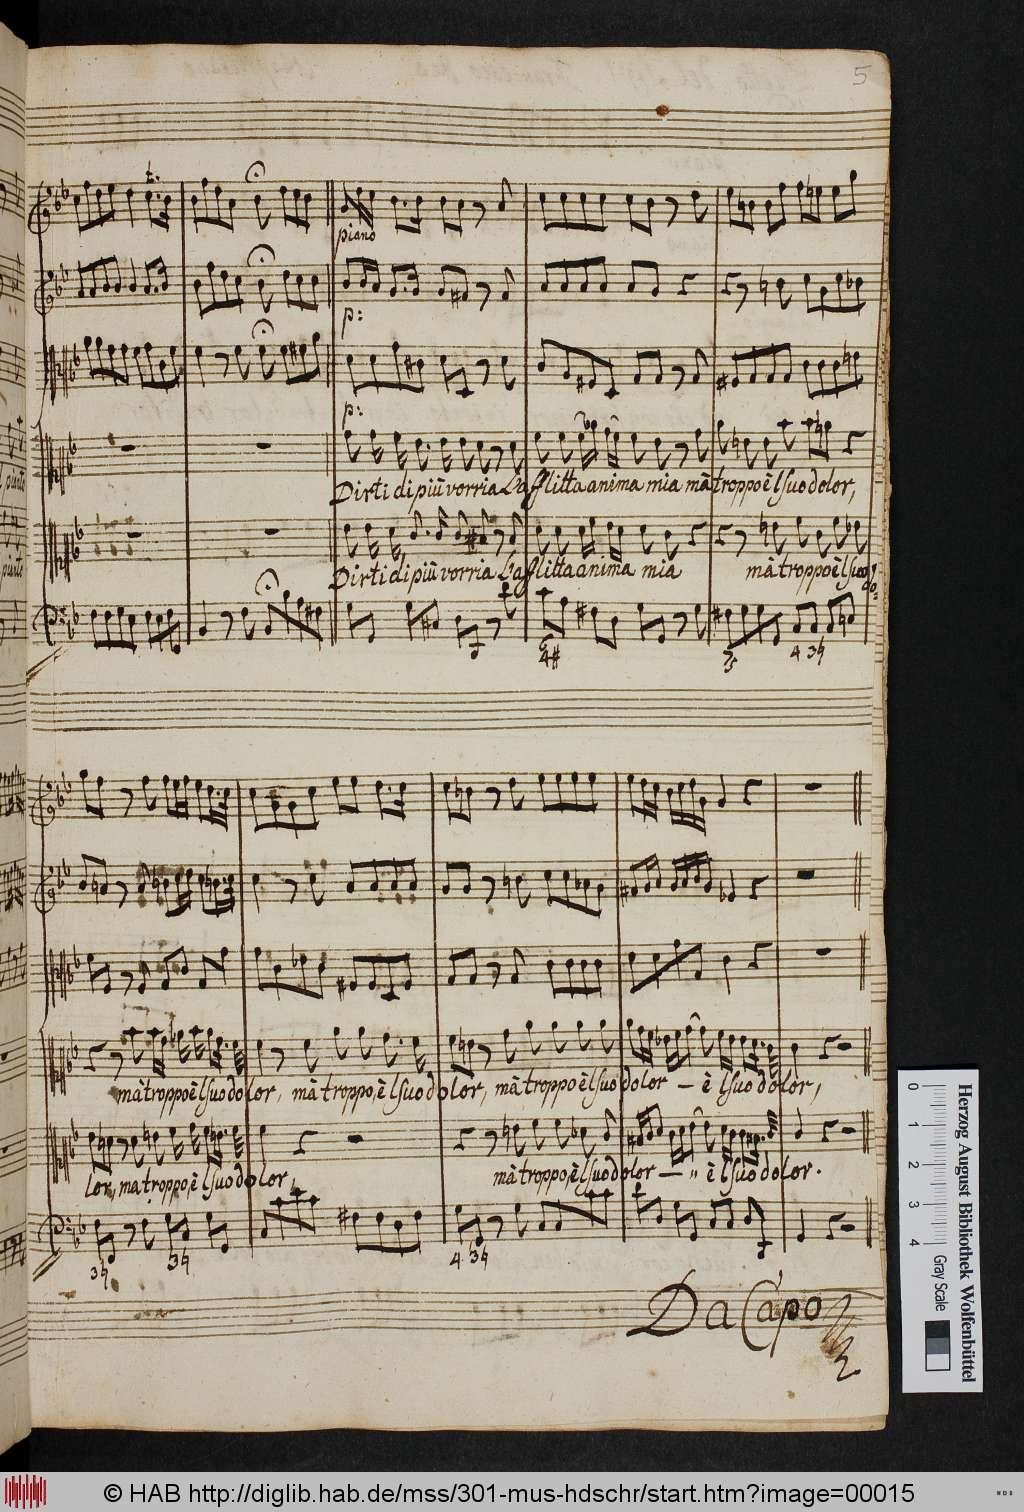 5
piano
p:
p:
pianto
Dirti di più vorria L'afflitta anima mia mà troppo è l suo dolor,
pianto
Dirti di più vorria L'afflitta anima mia mà troppo è l suo do=
mà troppo è l suo dolor, mà troppo, è l suo dolor, mà troppo è l suo dolor — è l suo dolor,
lor, ma troppo, è l suo dolor, mà troppo, è l suo dolor — " è l suo dolor.
Da Capo
Herzog August Bibliothek Wolfenbüttel
0 1 2 3 4 Gray Scale
© HAB http://diglib.hab.de/mss/301-mus-hdschr/start.htm?image=00015